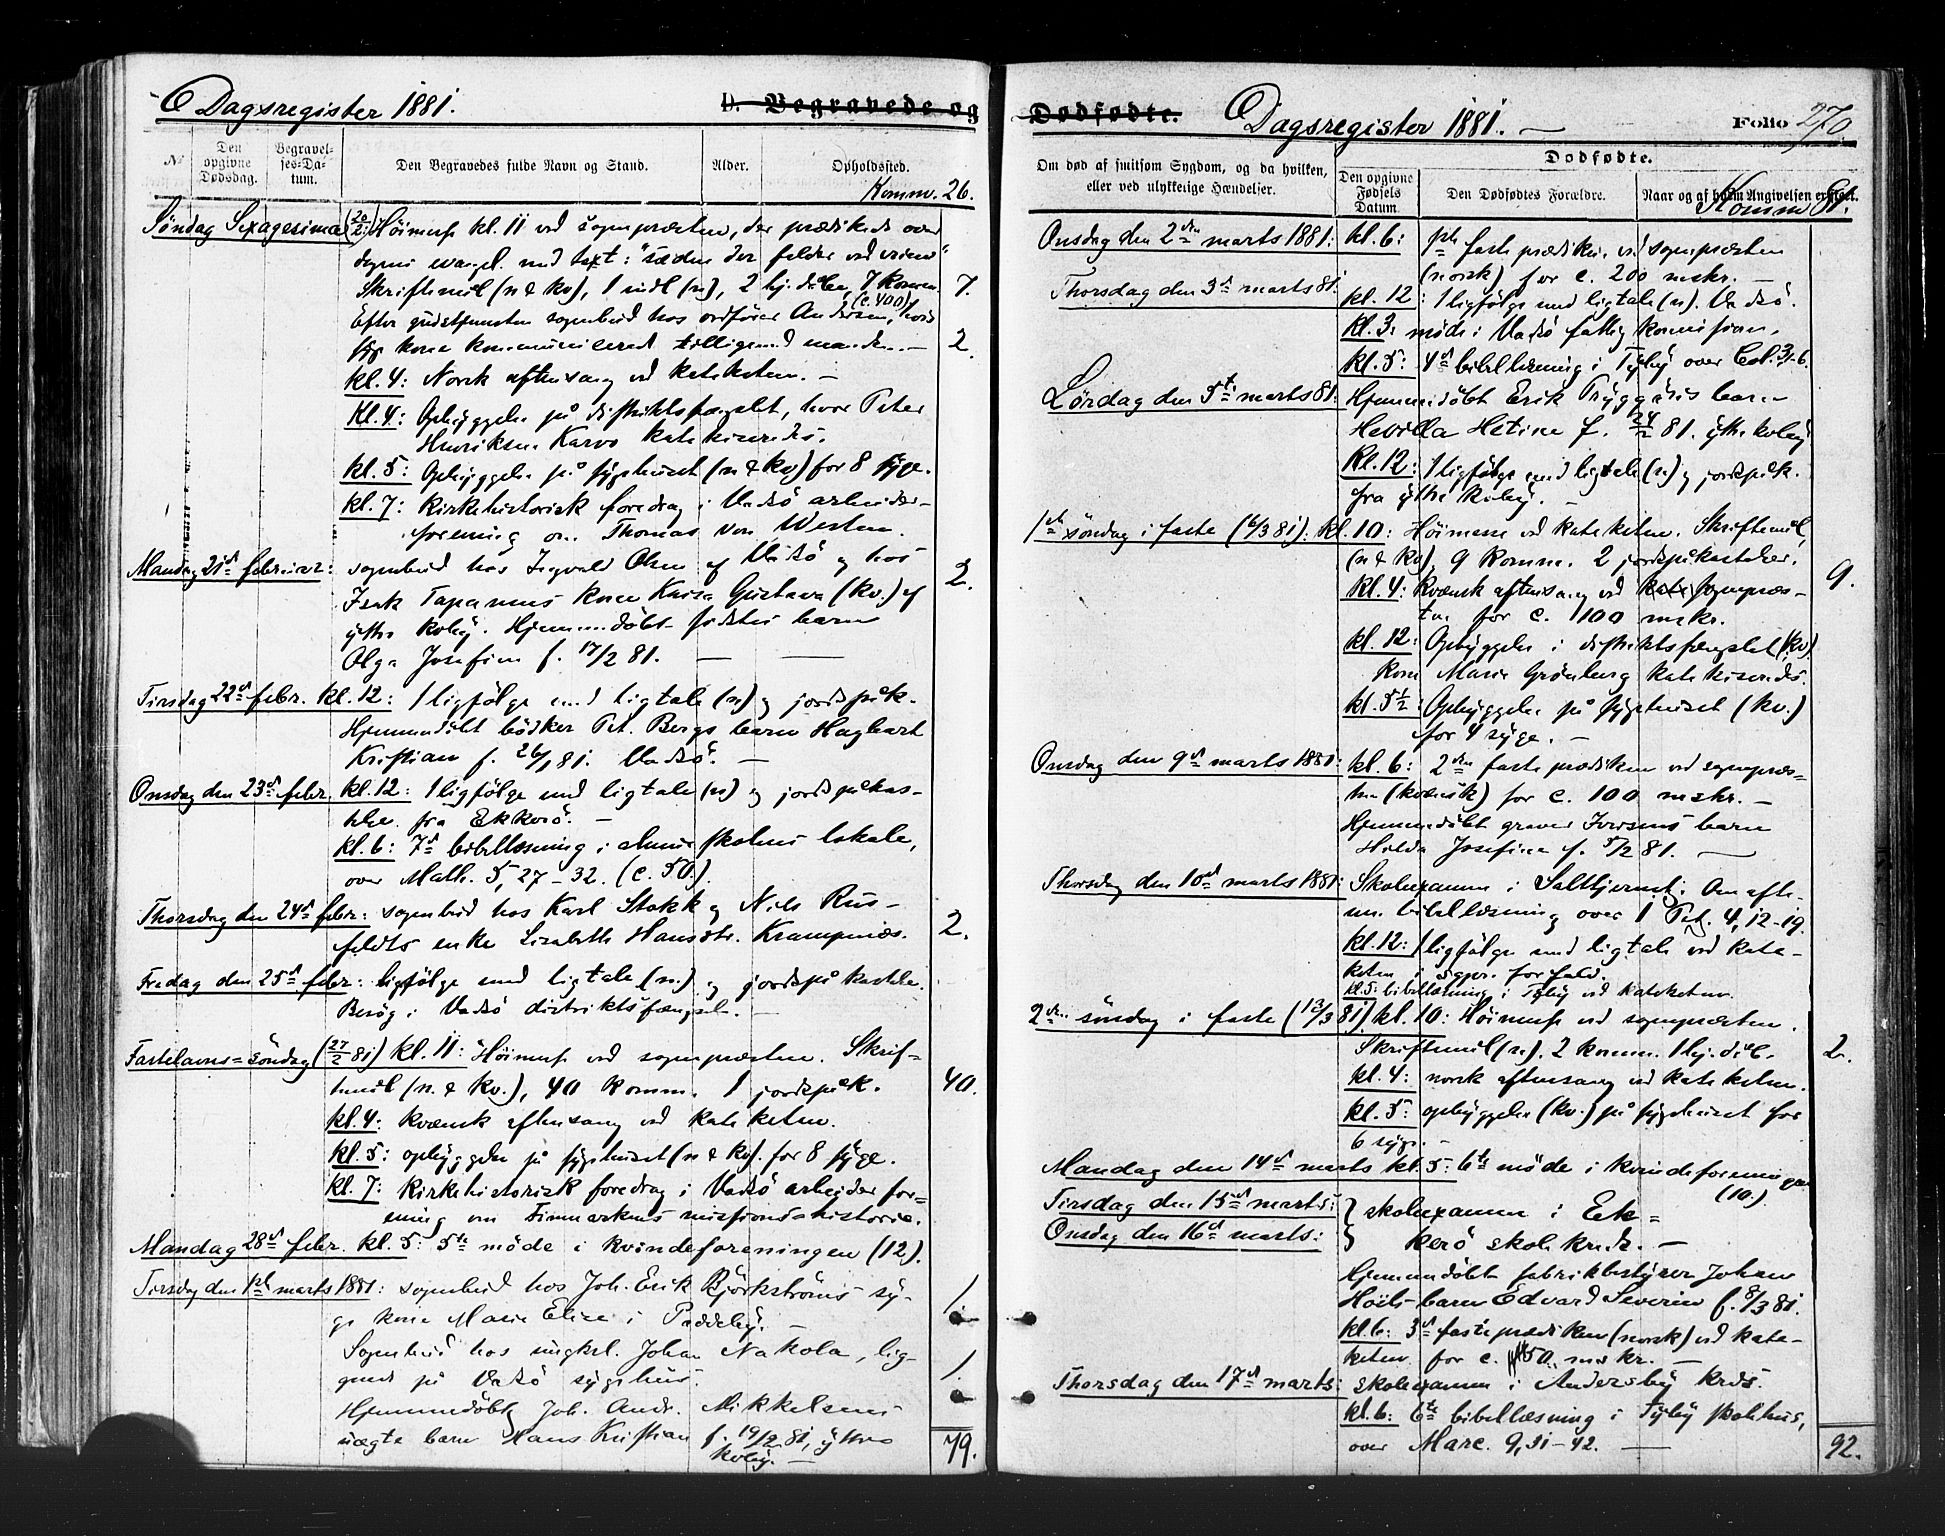 Dagsregister 1881.
D. Begravede og
№
Den opgivne Dødsdag.
Begravelses-Datum.
Den Begravedes fulde Navn og Stand.
Alder.
Opholdssted.
Komm. 26.
Söndag Sexagesima (20/2) Höimesse kl. 11 ved sognepræsten, der prædikede over
dagens evangel. med text: "sæden der falder ved veien"
Skriftemål (n & kv), 1 indl (n), 2 hj. døbte, 7 komm. 7.
(c. 400)
Efter gudstjenesten sognebud hos ordförer Andersen, hvis
syge kone kommunicerede tilligemed manden. — 2.
kl. 4: Norsk aftensang ved kateketen. —
kl. 4: Opbyggelse på distriktsfængslet, hvor Peter
Henriksen Karvo katekiseredes.
kl. 5: Opbyggelse på sygehuset (n & kv) for 8 syge.
kl. 7: Kirkehistorisk foredrag i Vadsö arbeider-
forening om Thomas von Westen.
Mandag 21de februar: sognebud hos Ingvald Olsen af Vadsö og hos 2.
Isak Tapanis kone Kaisa Gustava (kv.) af
ytre kvby. Hjemmedöbt barn
Olga Josefine f. 17/2 81. — —
Tirsdag 22de febr. kl. 12: 1 ligfölge med ligtale (n) og jordspåk.
Hjemmedöbt bödker Pet. Bergs barn Hagbart
Kristian f. 26/1 81. Vadsö. —
Onsdag den 23de febr. kl. 12: 1 ligfölge med ligtale (n) og jordspåkas-
telse fra Ekkerö. —
kl. 6: 7de bibellæsning i almueskolens lokale,
over Math. 5, 27–32. (c. 50).
Thorsdag den 24de febr: sognebud hos Karl Stokk og Nils Rus-
feldts enke Lisabeth Hansdtr. Krampenæs. 2.
Fredag den 25de febr: ligfölge med ligtale (n.) og jordspåkastelse.
Besög i Vadsö distriktsfængsel. —
Fastelavns=söndag (27/2 81) kl. 11: Höimesse ved sognepræsten. Skrif-
temål (n. & kv.), 40 komm. 1 jordspåk. 40.
kl. 4: kvænsk aftensang ved kateketen.
kl. 5: opbyggelse på sygehuset (n & kv). for 8 syge.
kl. 7: Kirkehistorisk foredrag i Vadsö arbejderfor=
ening om Finmarkens missionshistorie.
Mandag 28de febr. kl. 5: 5te möde i kvindeforeningen (12).
Tirsdag den 1ste marts 1881: sognebud hos Joh. Erik Björkströms sy-
ge kone Marie Elise i Paddeby. — 1.
Sognebud hos ungkel. Johan Nakola, lig-
gende på Vadsö sygehus. 1.
Hjemmedöbt Joh. Andr. Mikkelsens
uægte barn Hans Kristian f. 19/2 81, ytre
kvby. — 79.
Dødfødte.
Dagsregister 1881. —
Folio 270
Om død af smitsom Sygdom, og da hvilken, eller ved ulykkelige Hændelser.
Dødfødte.
Den opgivne Fødsels Datum.
Den Dødfødtes Forældre.
Naar og af hvem Angivelsen er skeet.
Komm 81.
Onsdag den 2den marts 1881: kl. 6: 1ste fasteprædiken ved sognepræsten
(norsk) for c. 200 mskr. —
Thorsdag den 3de marts 81: kl. 12: 1 ligfölge med ligtale (n). Vadsö.
kl. 3: möde i Vadsö fattigkommission.
kl. 5: 4de bibellæsning i Tyby over Col. 3,1-6.
Lördag den 5te marts 81: Hjemmedöbt Erik Tryggäis barn
Hetine f. 24/2 81. ytre kvby
Kl. 12: 1 ligfölge med ligtale (n) og jordspåk.
fra ytre kvby. —
1ste söndag i faste (6/3 81): kl. 10: Höimesse ved kateketen. Skriftemål,
(n & kv), 9 komm. 2 jordspåkastelser. 9.
kl. 4: Kvænsk aftensang ved sognepræs-
ten for c. 100 mskr.
kl. 12: Opbyggelse i distriktsfængslet (kv).
Marie Grønberg katekiseredes.
kl. 5½: Opbyggelse på sygehuset (kv.)
for 4 syge. —
Onsdag den 9de marts 1881: kl. 6: 2den fasteprædiken ved sognepræs=
ten (kvænsk) for c. 100 mskr. —
Hjemmedöbt graver Iversens barn
Hilda Josefine f. 5/2 81. —
Thorsdag den 10de marts 1881: Skoleexamen i Salttjernet. Om afte-
nen bibellæsning over 1 Pet. 4, 12-19.
kl. 12: 1 ligfölge med ligtale ved kate-
keten i sgpr. forfald.
kl. 5: bibellæsning i Tyby ved kateketen.
2den söndag i faste (13/3 81) kl. 10: Höimesse ved sognepræsten.
Skriftemål (n). 2 komm. 1 hj. döbt. 2.
kl. 4: norsk aftensang ved kateketen.
kl. 5: opbyggelse (kv.) på sygehuset for
6 syge. —
Mandag den 14de marts kl. 5: 6te möde i kvindeforeningen
(10.)
Tirsdag den 15de marts: } skoleexamen i Ek=
Onsdag den 16de marts: } kerö skolekreds. —
Hjemmedöbt fabrikbestyrer Johan
barn Edvard Severin f. 8/3 81.
kl. 6: 3de fasteprædiken (norsk) ved kate-
keten for c. 150 mskr. —
Thorsdag den 17de marts: skoleexamen i Andersby krds.
kl. 6: 6te bibellæsning i Tyby skolehus,
over Marc. 9, 31–42. — 92.